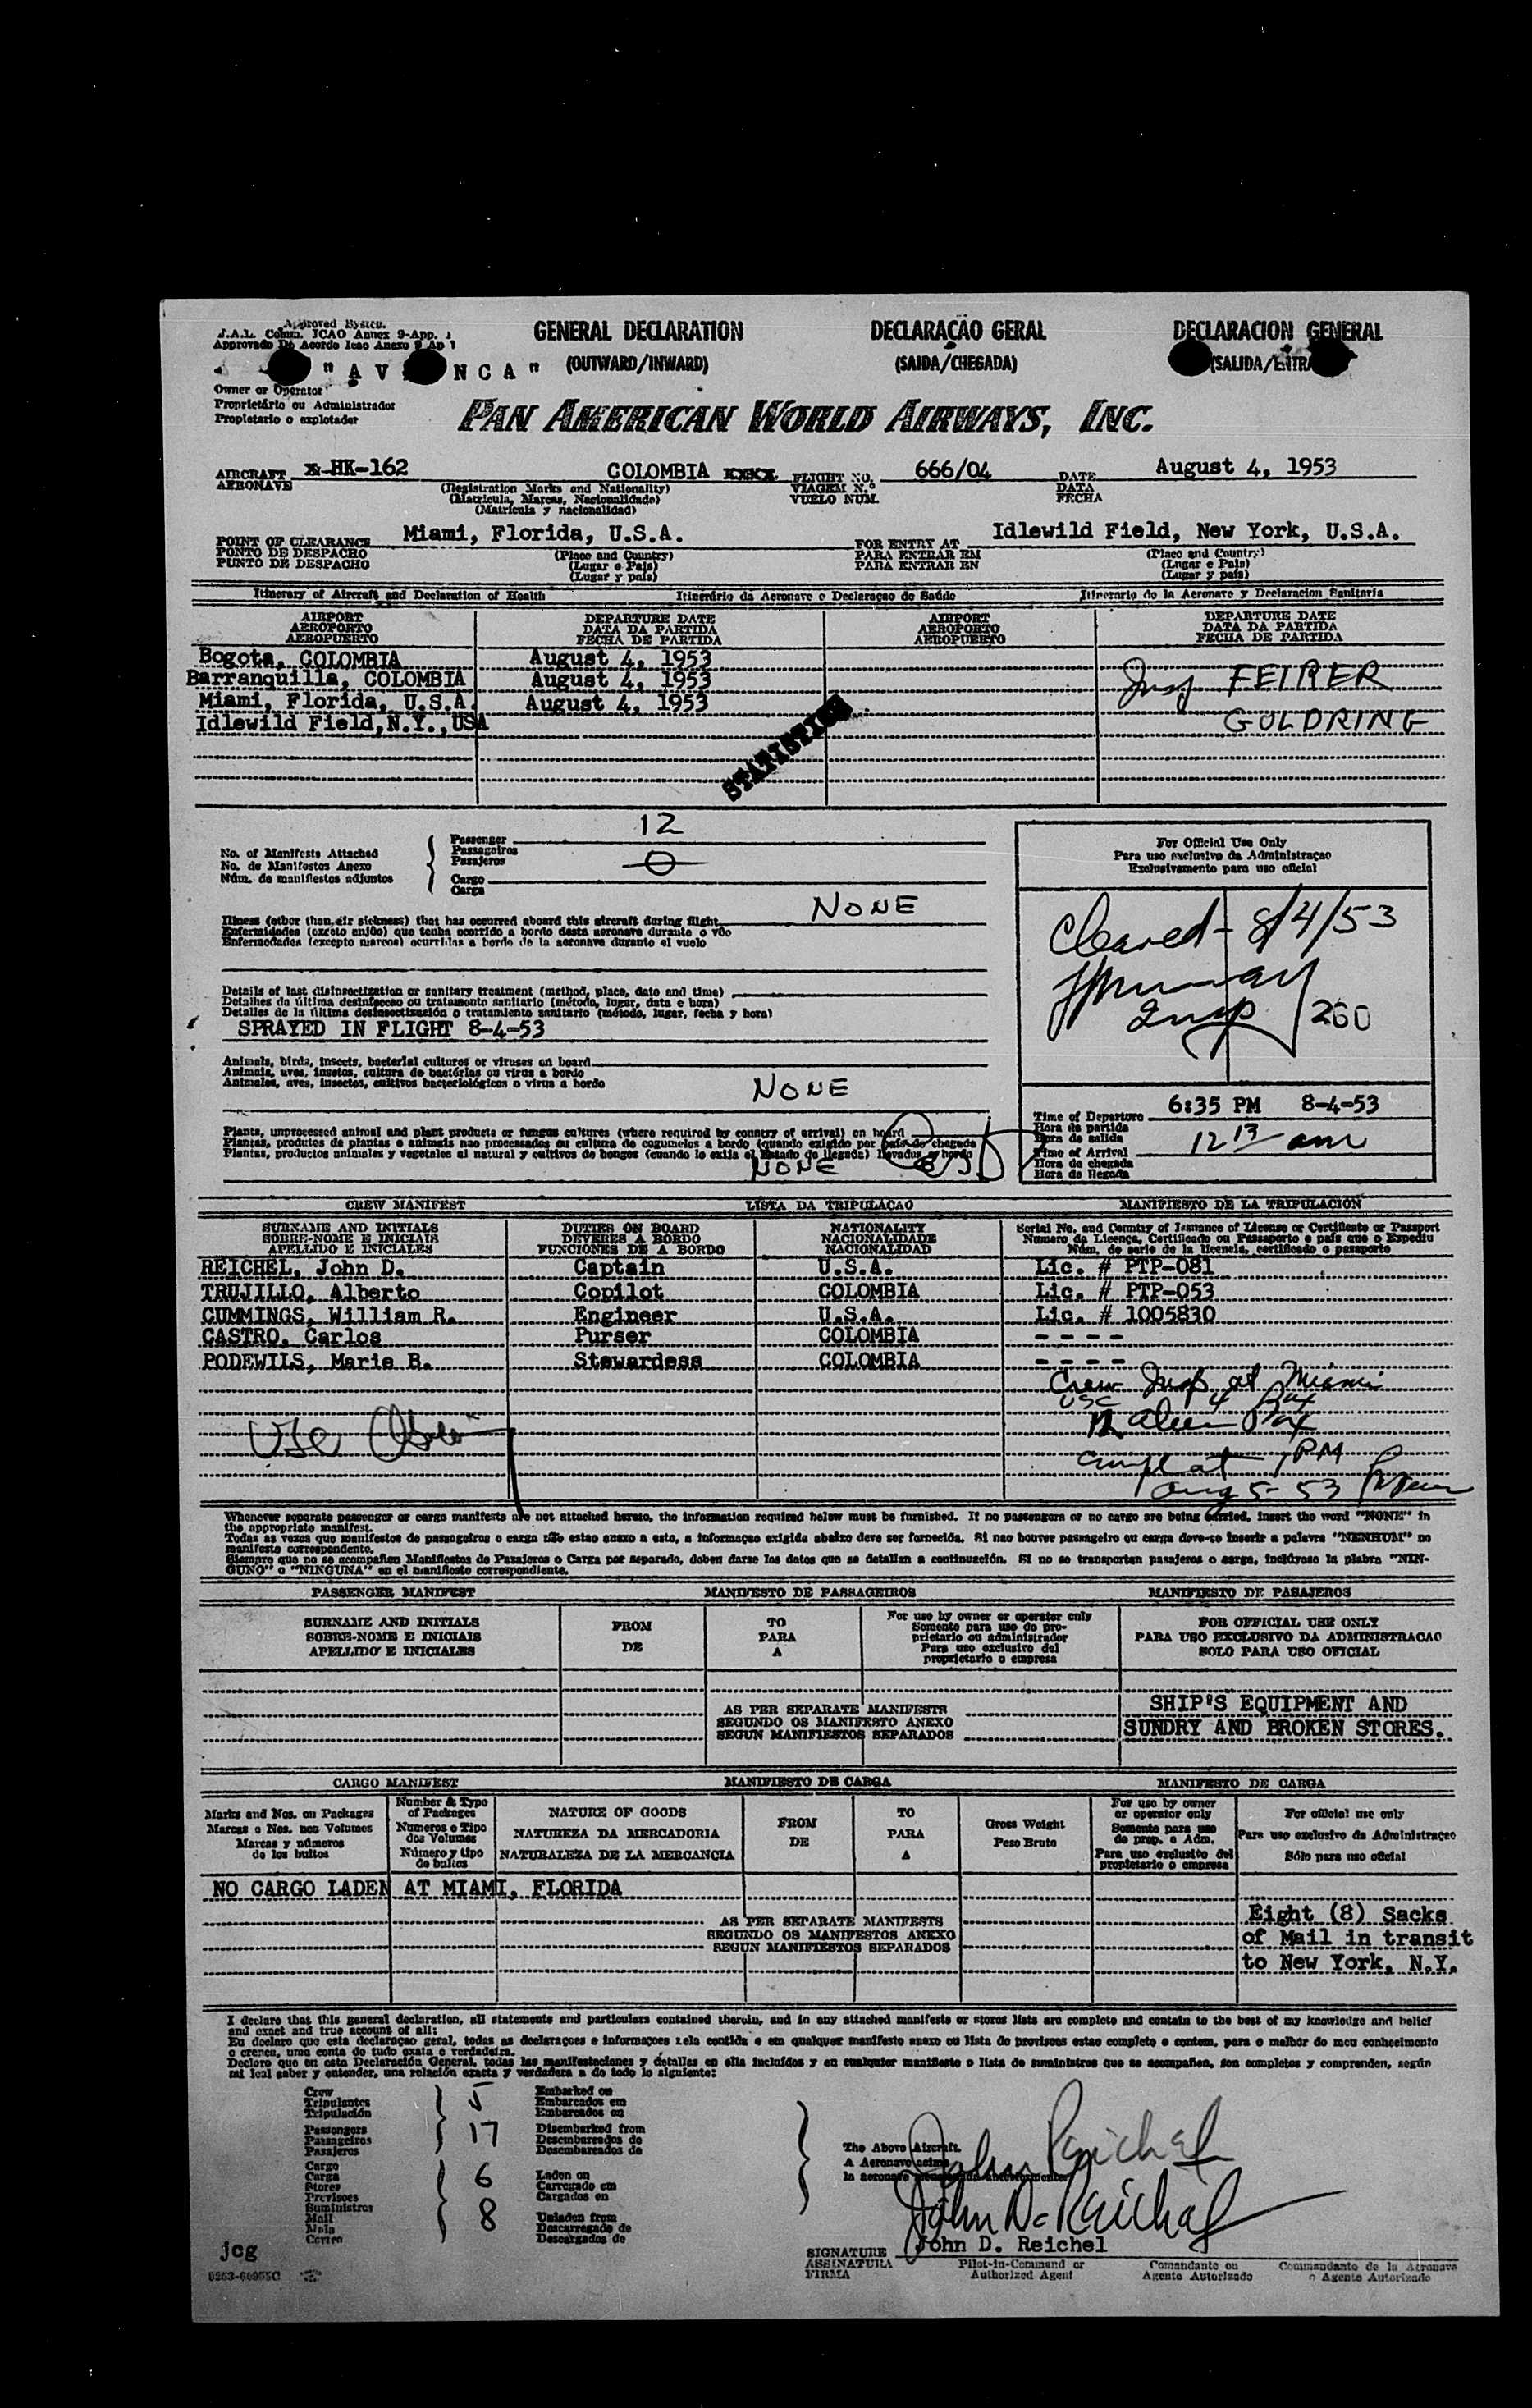 Approved System.
J.A.L. Comm. ICAO Annex 9-App. 1
Approvado De Acordo Icao Anexo 9 Ap 1
GENERAL DECLARATION DECLARAÇÃO GERAL DECLARACION GENERAL
(OUTWARD/INWARD) (SAIDA/CHEGADA) (SALIDA/ENTRA
"A V NCA"
Owner or Operator
Proprietário ou Administrador
Propietario o explotador
PAN AMERICAN WORLD AIRWAYS, INC.
AIRCRAFT HK-162 COLOMBIA xxxx FLIGHT NO. 666/04 DATE August 4, 1953
AERONAVE (Registration Marks and Nationality) VIAGEM N.º DATA
(Matricula, Marcas, Nacionalidade) VUELO NUM. FECHA
(Matricula y nacionalidad)
POINT OF CLEARANCE Miami, Florida, U.S.A. FOR ENTRY AT Idlewild Field, New York, U.S.A.
PONTO DE DESPACHO (Place and Country) PARA ENTRAR EM (Place and Country)
PUNTO DE DESPACHO (Lugar e Pais) PARA ENTRAR EN (Lugar e Pais)
(Lugar y país) (Lugar y país)
Itinerary of Aircraft and Declaration of Health Itinerário da Aeronave e Declaraçao de Saúde Itinerario de la Aeronave y Declaracion Sanitaria
AIRPORT DEPARTURE DATE AIRPORT DEPARTURE DATE
AEROPORTO DATA DA PARTIDA AEROPORTO DATA DA PARTIDA
AEROPUERTO FECHA DE PARTIDA AEROPUERTO FECHA DE PARTIDA
Bogota, COLOMBIA August 4, 1953
Barranquilla, COLOMBIA August 4, 1953 Insp FEIRER
Miami, Florida, U.S.A. August 4, 1953
Idlewild Field, N.Y., USA GOLDRING
STATISTICS
No. of Manifests Attached
No. de Manifestos Anexo
Núm. de manifiestos adjuntos
Passenger 12
Passageiros
Pasajeros
Cargo 0
Carga
Illness (other than air sickness) that has occurred aboard this aircraft during flight NONE
Enfermidades (exceto enjôo) que tenha ocorrido a bordo desta aeronave durante o vôo
Enfermedades (excepto mareos) ocurridas a bordo de la aeronave durante el vuelo
Details of last disinsectization or sanitary treatment (method, place, date and time)
Detalhes da última desinfeccao ou tratamento sanitario (método, lugar, data e hora)
Detalles de la última desinsectización o tratamiento sanitario (método, lugar, fecha y hora)
SPRAYED IN FLIGHT 8-4-53
Animals, birds, insects, bacterial cultures or viruses on board
Animais, aves, insetos, cultura de bactérias ou virus a bordo
Animales, aves, insectos, cultivos bacteriológicos o virus a bordo
NONE
Plants, unprocessed animal and plant products or fungus cultures (where required by country of arrival) on board
Plantas, produtos de plantas e animais nao processados ou cultura de cogumelos a bordo (quando exigido por país de chegada
Plantas, productos animales y vegetales al natural y cultivos de hongos (cuando lo exija el Estado de llegada) llevados a bordo
NONE
For Official Use Only
Para uso exclusivo da Administraçao
Exclusivamente para uso oficial
Cleared - 8/4/53
Insp 260
Time of Departure 6:35 PM 8-4-53
Hora da partida
Hora de salida
Time of Arrival 12 13 am
Hora da chegada
Hora de llegada
CREW MANIFEST LISTA DA TRIPULACAO MANIFIESTO DE LA TRIPULACIÓN
SURNAME AND INITIALS DUTIES ON BOARD NATIONALITY Serial No. and Country of Issuance of License or Certificate or Passport
SOBRE-NOME E INICIAIS DEVERES A BORDO NACIONALIDADE Numero da Licença, Certificado ou Passaporte e país que o Expediu
APELLIDO E INICIALES FUNCIONES DE A BORDO NACIONALIDAD Núm. de serie de la licencia, certificado o pasaporte
REICHEL, John D. Captain U.S.A. Lic. # PTP-081
TRUJILLO, Alberto Copilot COLOMBIA Lic. # PTP-053
CUMMINGS, William R. Engineer U.S.A. Lic. # 1005830
CASTRO, Carlos Purser COLOMBIA - - - -
PODEWILS, Marie B. Stewardess COLOMBIA - - - -
Crew Insp at Miami
USC 4 Pax
12 alien Pax
Compl at 1 PM
Aug 5-53
Whenever separate passenger or cargo manifests are not attached hereto, the information required below must be furnished. If no passengers or no cargo are being carried, insert the word "NONE" in
the appropriate manifest.
Todas as vezes que manifestos de passageiros o carga não estao anexo a esto, a informaçao exigida abaixo deve ser fornecida. Si nao houver passageiro ou carga deve-se inserir a palavra "NENHUM" no
manifesto correspondente.
Siempre que no se acompañen Manifiestos de Pasajeros o Carga por separado, deben darse los datos que se detallan a continuación. Si no se transportan pasajeros o carga, inclúyase la plabra "NIN-
GUNO" o "NINGUNA" en el manifiesto correspondiente.
PASSENGER MANIFEST MANIFESTO DE PASSAGEIROS MANIFIESTO DE PASAJEROS
SURNAME AND INITIALS FROM TO For use by owner or operator only FOR OFFICIAL USE ONLY
SOBRE-NOME E INICIAIS DE PARA Somente para uso do pro- PARA USO EXCLUSIVO DA ADMINISTRACAO
APELLIDO E INICIALES A prietario ou administrador SOLO PARA USO OFICIAL
Para uso exclusivo del
propietario o empresa
AS PER SEPARATE MANIFESTS SHIP'S EQUIPMENT AND
SEGUNDO OS MANIFESTO ANEXO SUNDRY AND BROKEN STORES.
SEGUN MANIFIESTOS SEPARADOS
CARGO MANIFEST MANIFIESTO DE CARGA MANIFESTO DE CARGA
Marks and Nos. on Packages Number & Type of Packages NATURE OF GOODS FROM TO Gross Weight For use by owner or operator only For official use only
Marcas e Nos. nos Volumes Numeros e Tipo dos Volumes NATUREZA DA MERCADORIA DE PARA Peso Bruto Somente para uso de prop. e Adm. Para uso exclusivo da Administraçao
Marcas y números de los bultos Número y tipo de bultos NATURALEZA DE LA MERCANCIA A Para uso exclusivo del propietario o empresa Sólo para uso oficial
NO CARGO LADEN AT MIAMI, FLORIDA
AS PER SEPARATE MANIFESTS Eight (8) Sacks
SEGUNDO OS MANIFESTOS ANEXO of Mail in transit
SEGUN MANIFIESTOS SEPARADOS to New York, N.Y.
I declare that this general declaration, all statements and particulars contained therein, and in any attached manifests or stores lists are complete and contain to the best of my knowledge and belief
and exact and true account of all:
Eu declaro que esta declaraçao geral, todas as declaraçoes e informaçoes nela contida e em qualquer manifesto anexo ou lista de provisoes estao completo e contem, para o melhor do meu conhecimento
e crenca, uma conta de tudo exata e verdadeira.
Declaro que en esta Declaración General, todas las manifestaciones y detalles en ella incluídos y en cualquier manifiesto o lista de suministros que se acompañen, son completos y comprenden, según
mi leal saber y entender, una relación exacta y verdadera a de todo lo siguiente:
Crew 5 Embarked on
Tripulantes Embarcados em
Tripulación Embarcados en
Passengers 17 Disembarked from
Passageiros Desembarcados de
Pasajeros Desembarcados de
Cargo 6 Laden on
Carga Carregado em
Stores Cargados en
Provisoes
Suministros
Mail 8 Unladen from
Mala Descarregado de
Correo Descargados de
The Above Aircraft.
A Aeronave acima
la aeronave
John Reichel
John D. Reichel
jcg
SIGNATURE John D. Reichel
ASSINATURA Pilot-in-Command or Comandante ou Commandante de la Aeronave
FIRMA Authorized Agent Agente Autorizado o Agente Autorizado